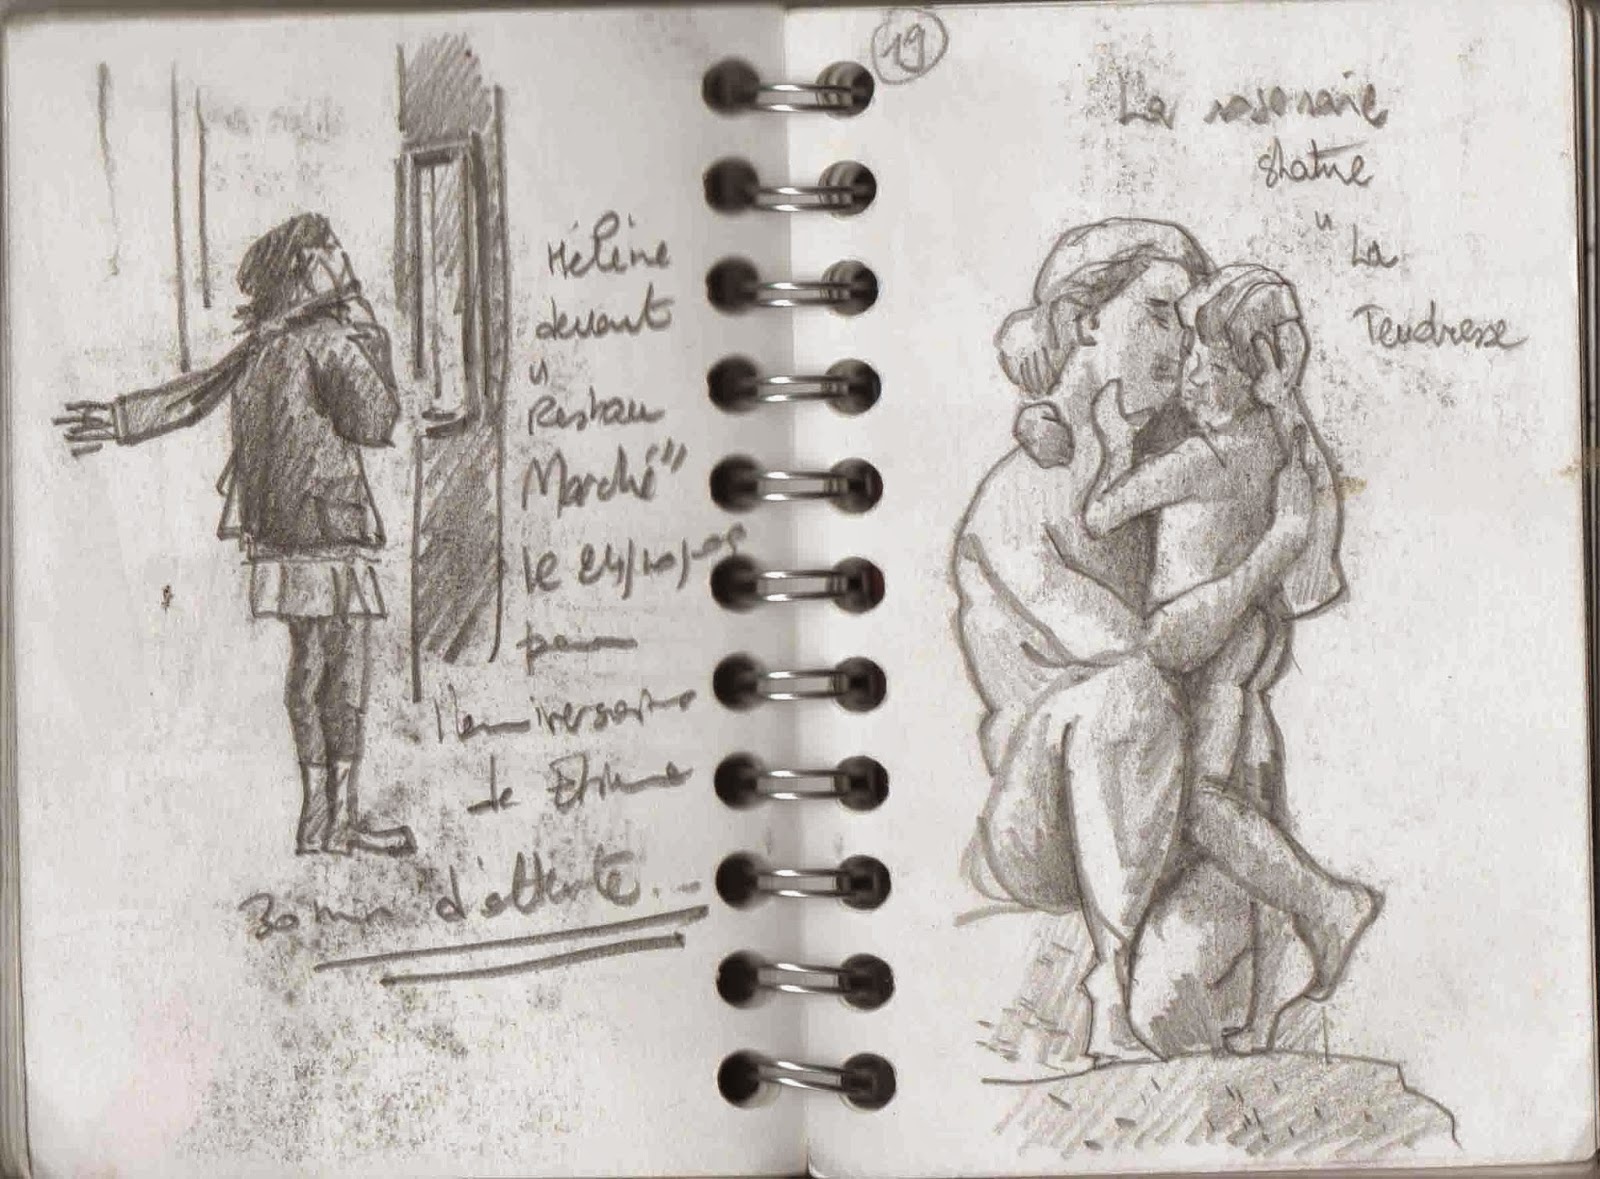 Hélène
devant
"
Restau
Marché"
le 24/10/
pour
l'anniversaire
de Etienne
30 min d'attente...
19
La roseraie
statue
" La
Tendresse